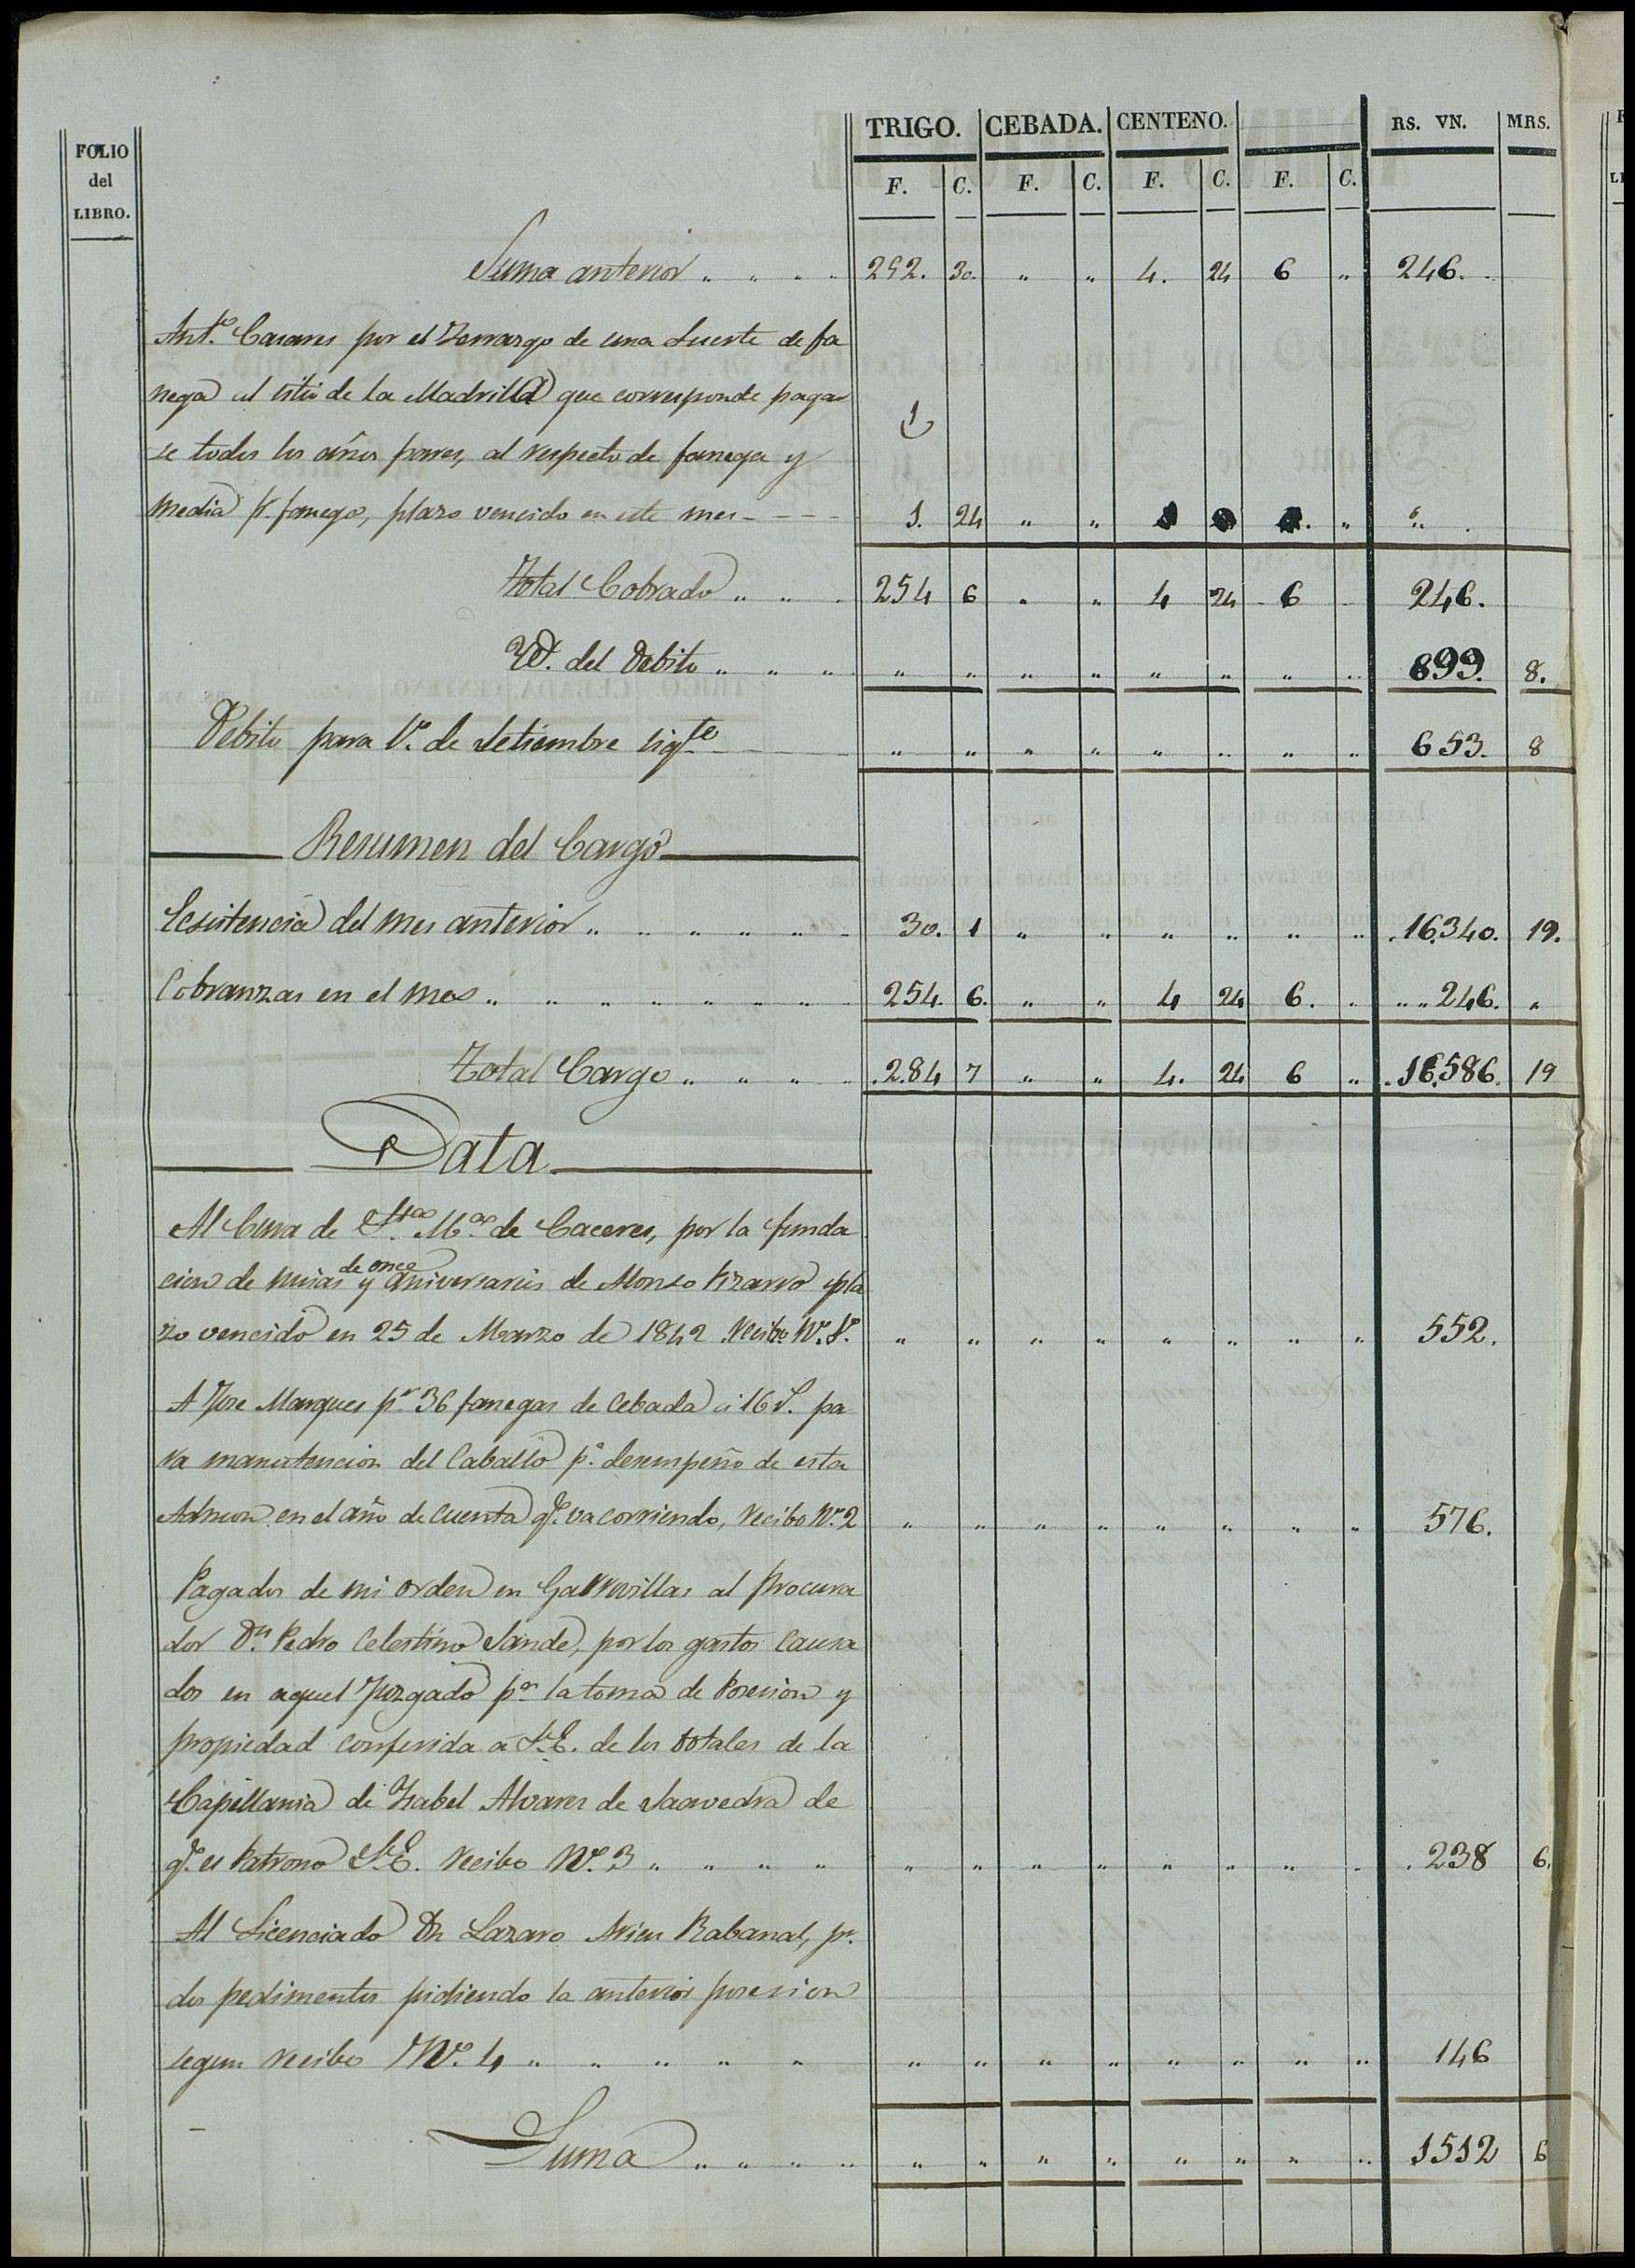 FOLIO
del
LIBRO.
TRIGO. CEBADA. CENTENO. RS. VN. MRS.
F. C. F. C. F. C. F. C.
Suma anterior " " " " 252. 30. " " 4. 24 6 " 246.
Ant.º Casares por el Terrazgo de una Suerte de fa
nega al sitio de la Madrilla que corresponde pagar
1
se todos los años pares, al respecto de fanega y
media p.r fanega, plazo vencido en este mes - - - 1. 24 " " " "
Total Cobrado " " " 254 6 " " 4 24 6 246.
Yd. del Debito " " " " " " " " " " " 899. 8.
Debito para 1.º de Setiembre sig.te " " " " " " " " 653. 8
Resumen del Cargo
Ecsistencia del mes anterior " " " " " " 30. 1 " " " " " " 16,340. 19.
Cobranzas en el mes " " " " " " " " 254. 6. " " 4 24 6. " " " 246. "
Total Cargo " " " " 284 7 " " 4. 24 6 " 16,586. 19
Data
Al Cura de S.ta M.a de Caceres, por la funda
de once
cion de misas y aniversarios de Alonso Pizarro pla
zo vencido en 25 de Marzo de 1842 Recibo N.º 1.º " " " " " " " " 552.
A Jose Marques p.r 36 fanegas de Cebada á 16 r.s pa
ra manutencion del Caballo p.a desempeño de esta
Admon en el año de cuenta q.e va corriendo, Recibo N.º 2 " " " " " " " " 576.
Pagados de mi orden en Garrovillas al Procura
dor D.n Pedro Celestino Sande, por los gastos causa
dos en aquel Juzgado p.a la toma de Posesion y
propiedad conferida a S.E. de los dotales de la
Capellania de Ysabel Alvares de Saavedra de
q.e es Patrono S.E. Recibo N.º 3 " " " " " " " " " " " " 238 6.
Al Licenciado Dn Lazaro Rabanal, p.r
dos pedimentos pidiendo la anterior posesion
segun recibo N.º 4 " " " " " " " " " " " " " 146
Suma " " " " " " " " " " " " 1512 6